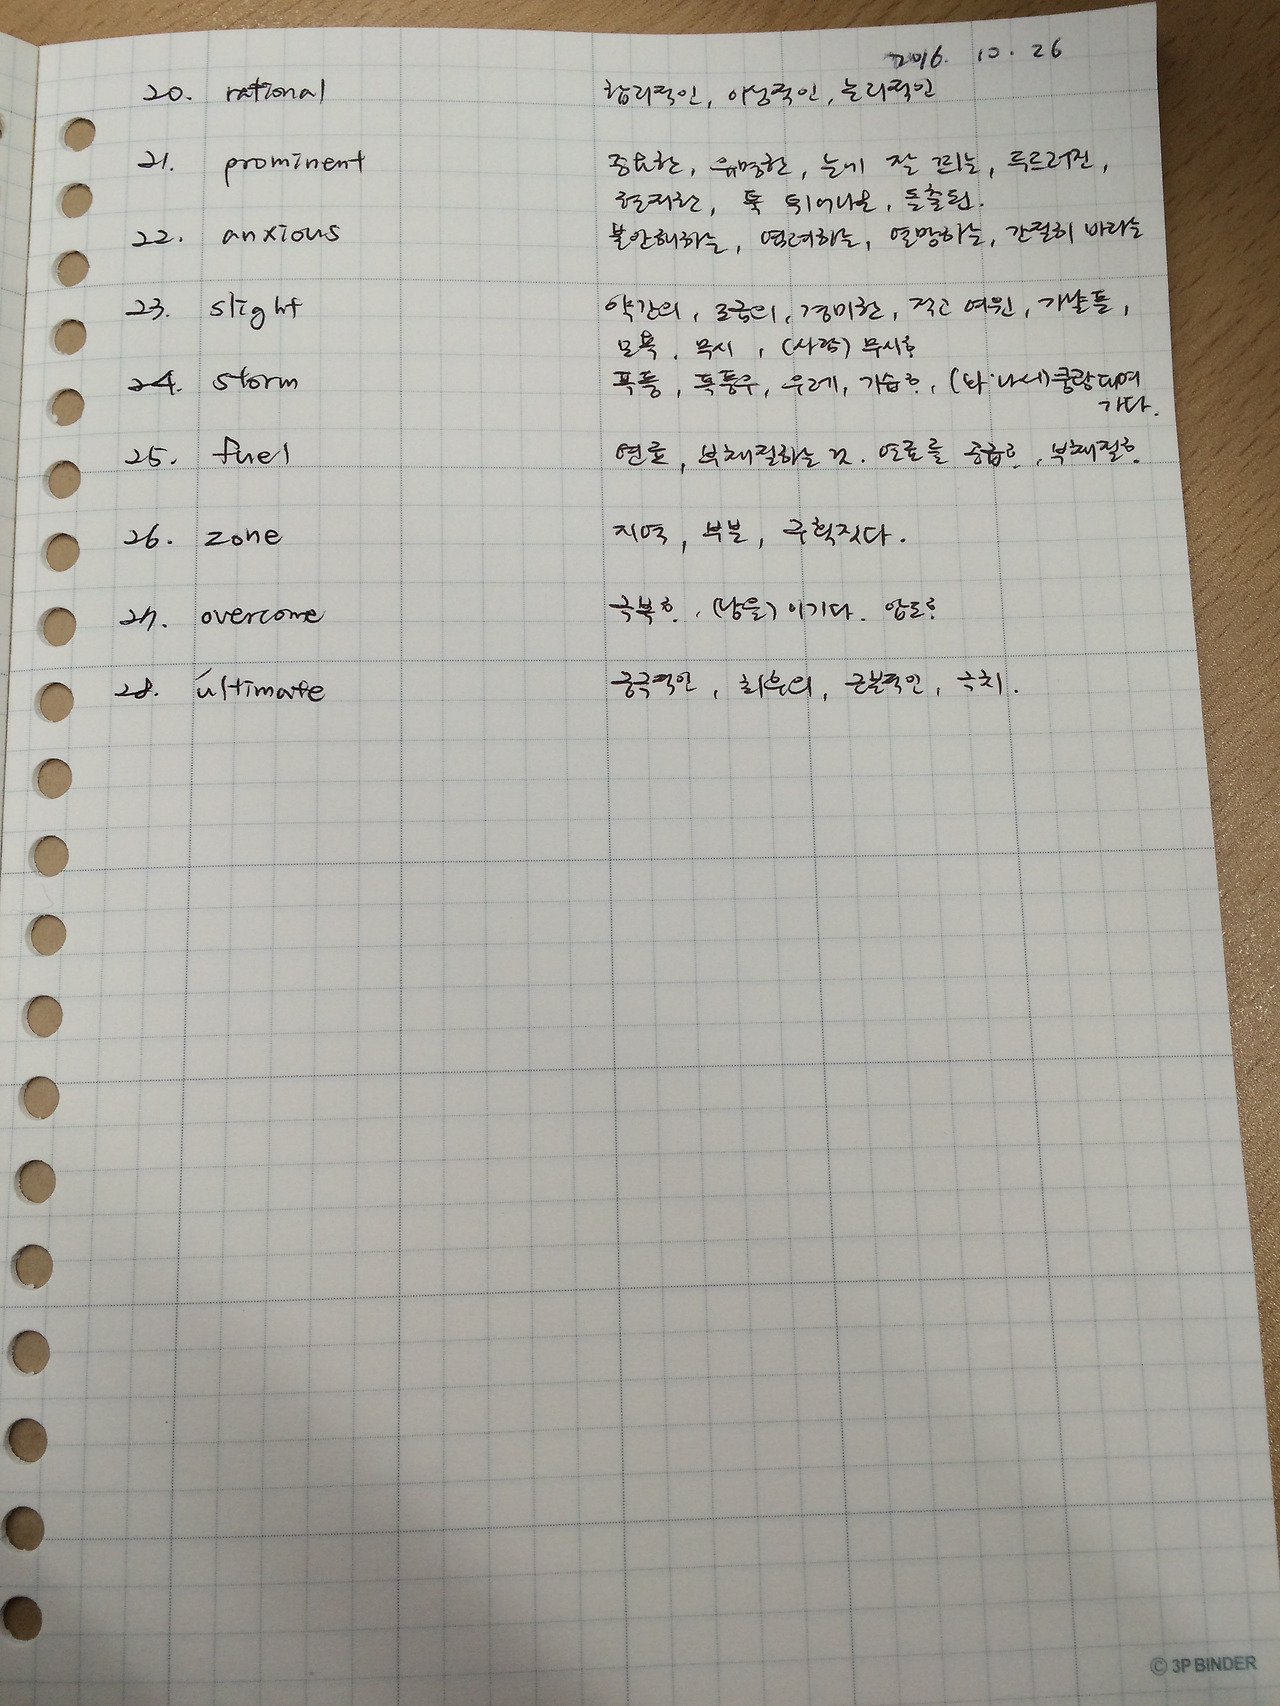 2016. 10. 26
20. rational 합리적인, 이성적인, 논리적인
21. prominent 중요한, 유명한, 눈에 잘 띄는, 두드러진,
현저한, 툭 튀어나온, 돌출된.
22. anxious 불안해하는, 염려하는, 열망하는, 간절히 바라는
23. slight 약간의, 조금의, 경미한, 작고 여윈, 가냘픈,
모욕. 무시, (사람) 무시ㅎ.
24. storm 폭풍, 폭풍우, 우레, 기습ㅎ., 쿵쾅대며
가다.
25. fuel 연료, 부채질하는 것. 연료를 공급ㅎ., 부채질ㅎ.
26. zone 지역, 부분, 구획짓다.
27. overcome 극복ㅎ. (남을) 이기다. 압도ㅎ.
28. ultimate 궁극적인, 최후의, 근본적인, 극치.
© 3P BINDER